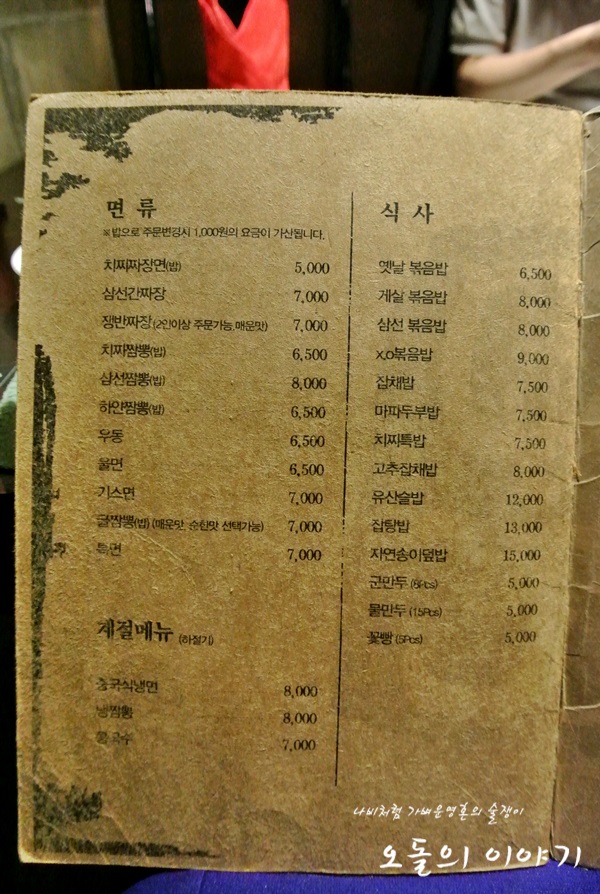 면 류
※밥으로 주문변경시 1,000원의 요금이 가산됩니다.
치찌짜장면(밥) 5,000
삼선간짜장 7,000
쟁반짜장 (2인이상 주문가능,매운맛) 7,000
치찌짬뽕(밥) 6,500
삼선짬뽕(밥) 8,000
하얀짬뽕(밥) 6,500
우동 6,500
울면 6,500
기스면 7,000
굴짬뽕(밥) (매운맛, 순한맛 선택가능) 7,000
특면 7,000
계절메뉴 (하절기)
중국식냉면 8,000
냉짬뽕 8,000
콩국수 7,000
식 사
옛날 볶음밥 6,500
게살 볶음밥 8,000
삼선 볶음밥 8,000
x.o볶음밥 9,000
잡채밥 7,500
마파두부밥 7,500
치찌특밥 7,500
고추잡채밥 8,000
유산슬밥 12,000
잡탕밥 13,000
자연송이덮밥 15,000
군만두 (6Pcs) 5,000
물만두 (15Pcs) 5,000
꽃빵 (5Pcs) 5,000
나비처럼 가벼운영혼의 술쟁이
오돌의 이야기